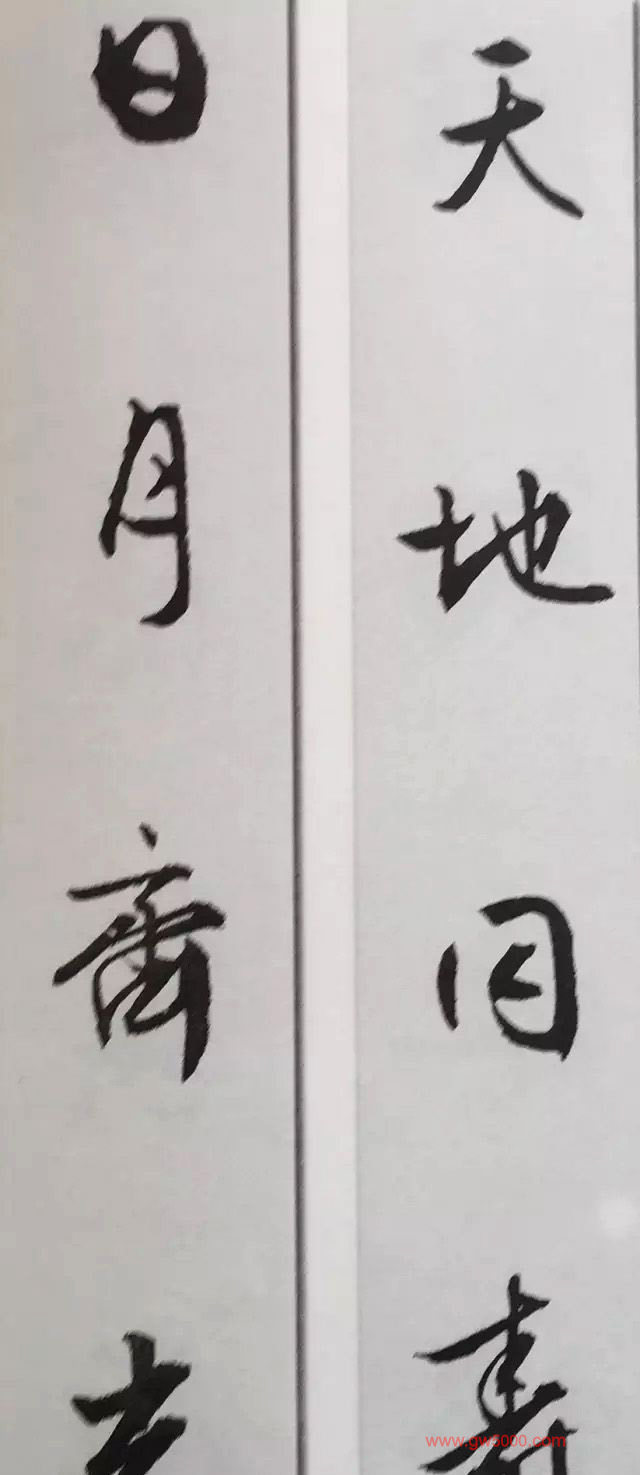 天地同壽
日月齊光
www.gw5000.com